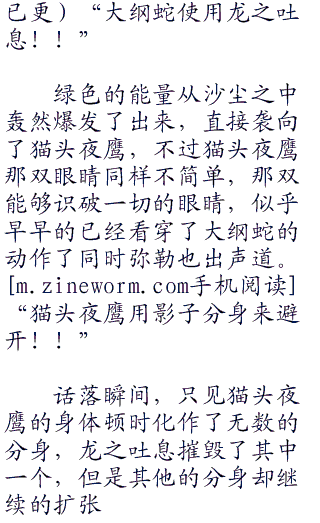 已更）“大纲蛇使用龙之吐
息！！”
绿色的能量从沙尘之中
轰然爆发了出来，直接袭向
了猫头夜鹰，不过猫头夜鹰
那双眼睛同样不简单，那双
能够识破一切的眼睛，似乎
早早的已经看穿了大纲蛇的
动作了同时弥勒也出声道。
[m.zineworm.com手机阅读]
“猫头夜鹰用影子分身来避
开！！”
话落瞬间，只见猫头夜
鹰的身体顿时化作了无数的
分身，龙之吐息摧毁了其中
一个，但是其他的分身却继
续的扩张